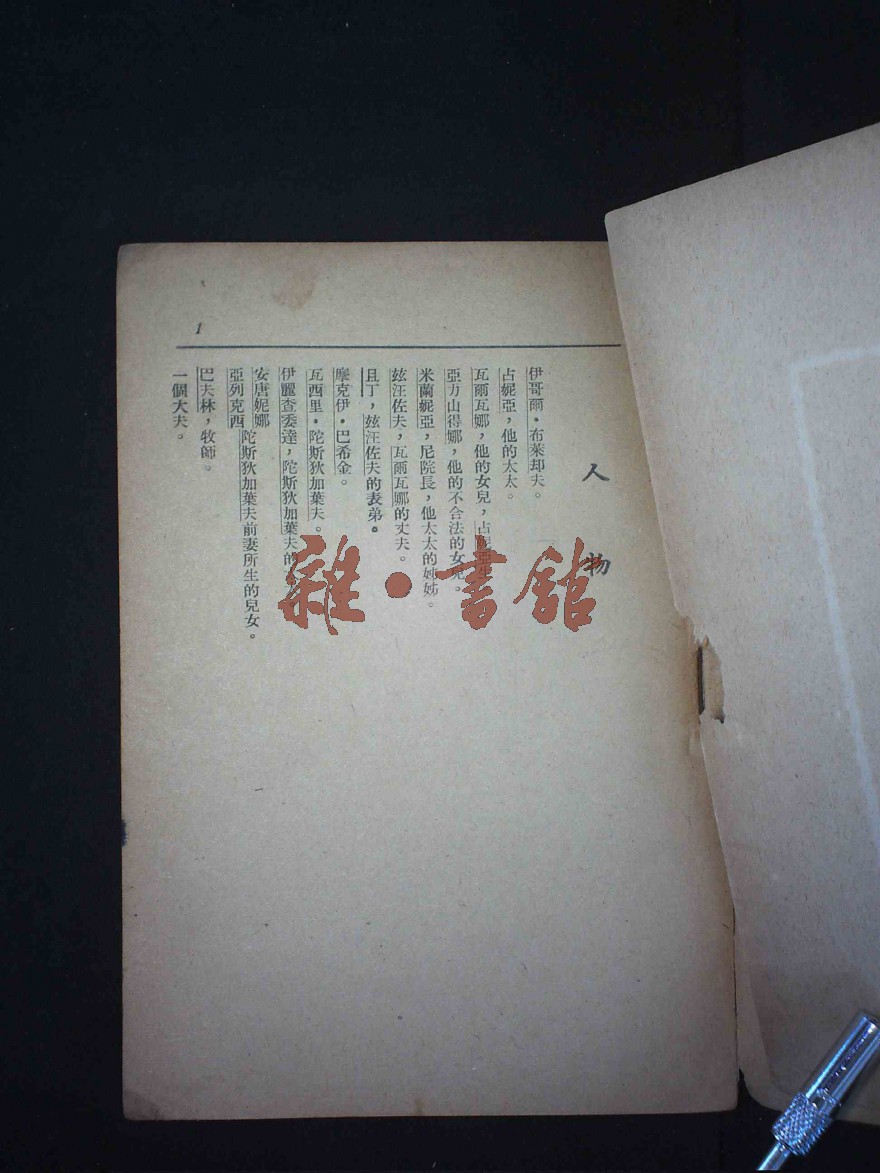 人物
伊哥爾·布萊却夫。
占妮亞，他的太太。
瓦爾瓦娜，他的女兒，占妮亞生
亞力山得娜，他的不合法的女兒。
米蘭妮亞，尼院長，他太太的姊姊。
玆汪佐夫，瓦爾瓦娜的丈夫。
且丁，玆汪佐夫的表弟。
摩克伊·巴希金。
瓦西里·陀斯狄加葉夫。
伊麗查委達，陀斯狄加葉夫的
安唐妮娜
亞列克西
陀斯狄加葉夫前妻所生的兒女。
巴夫林，牧師。
一個大夫。
1
雜·書舘